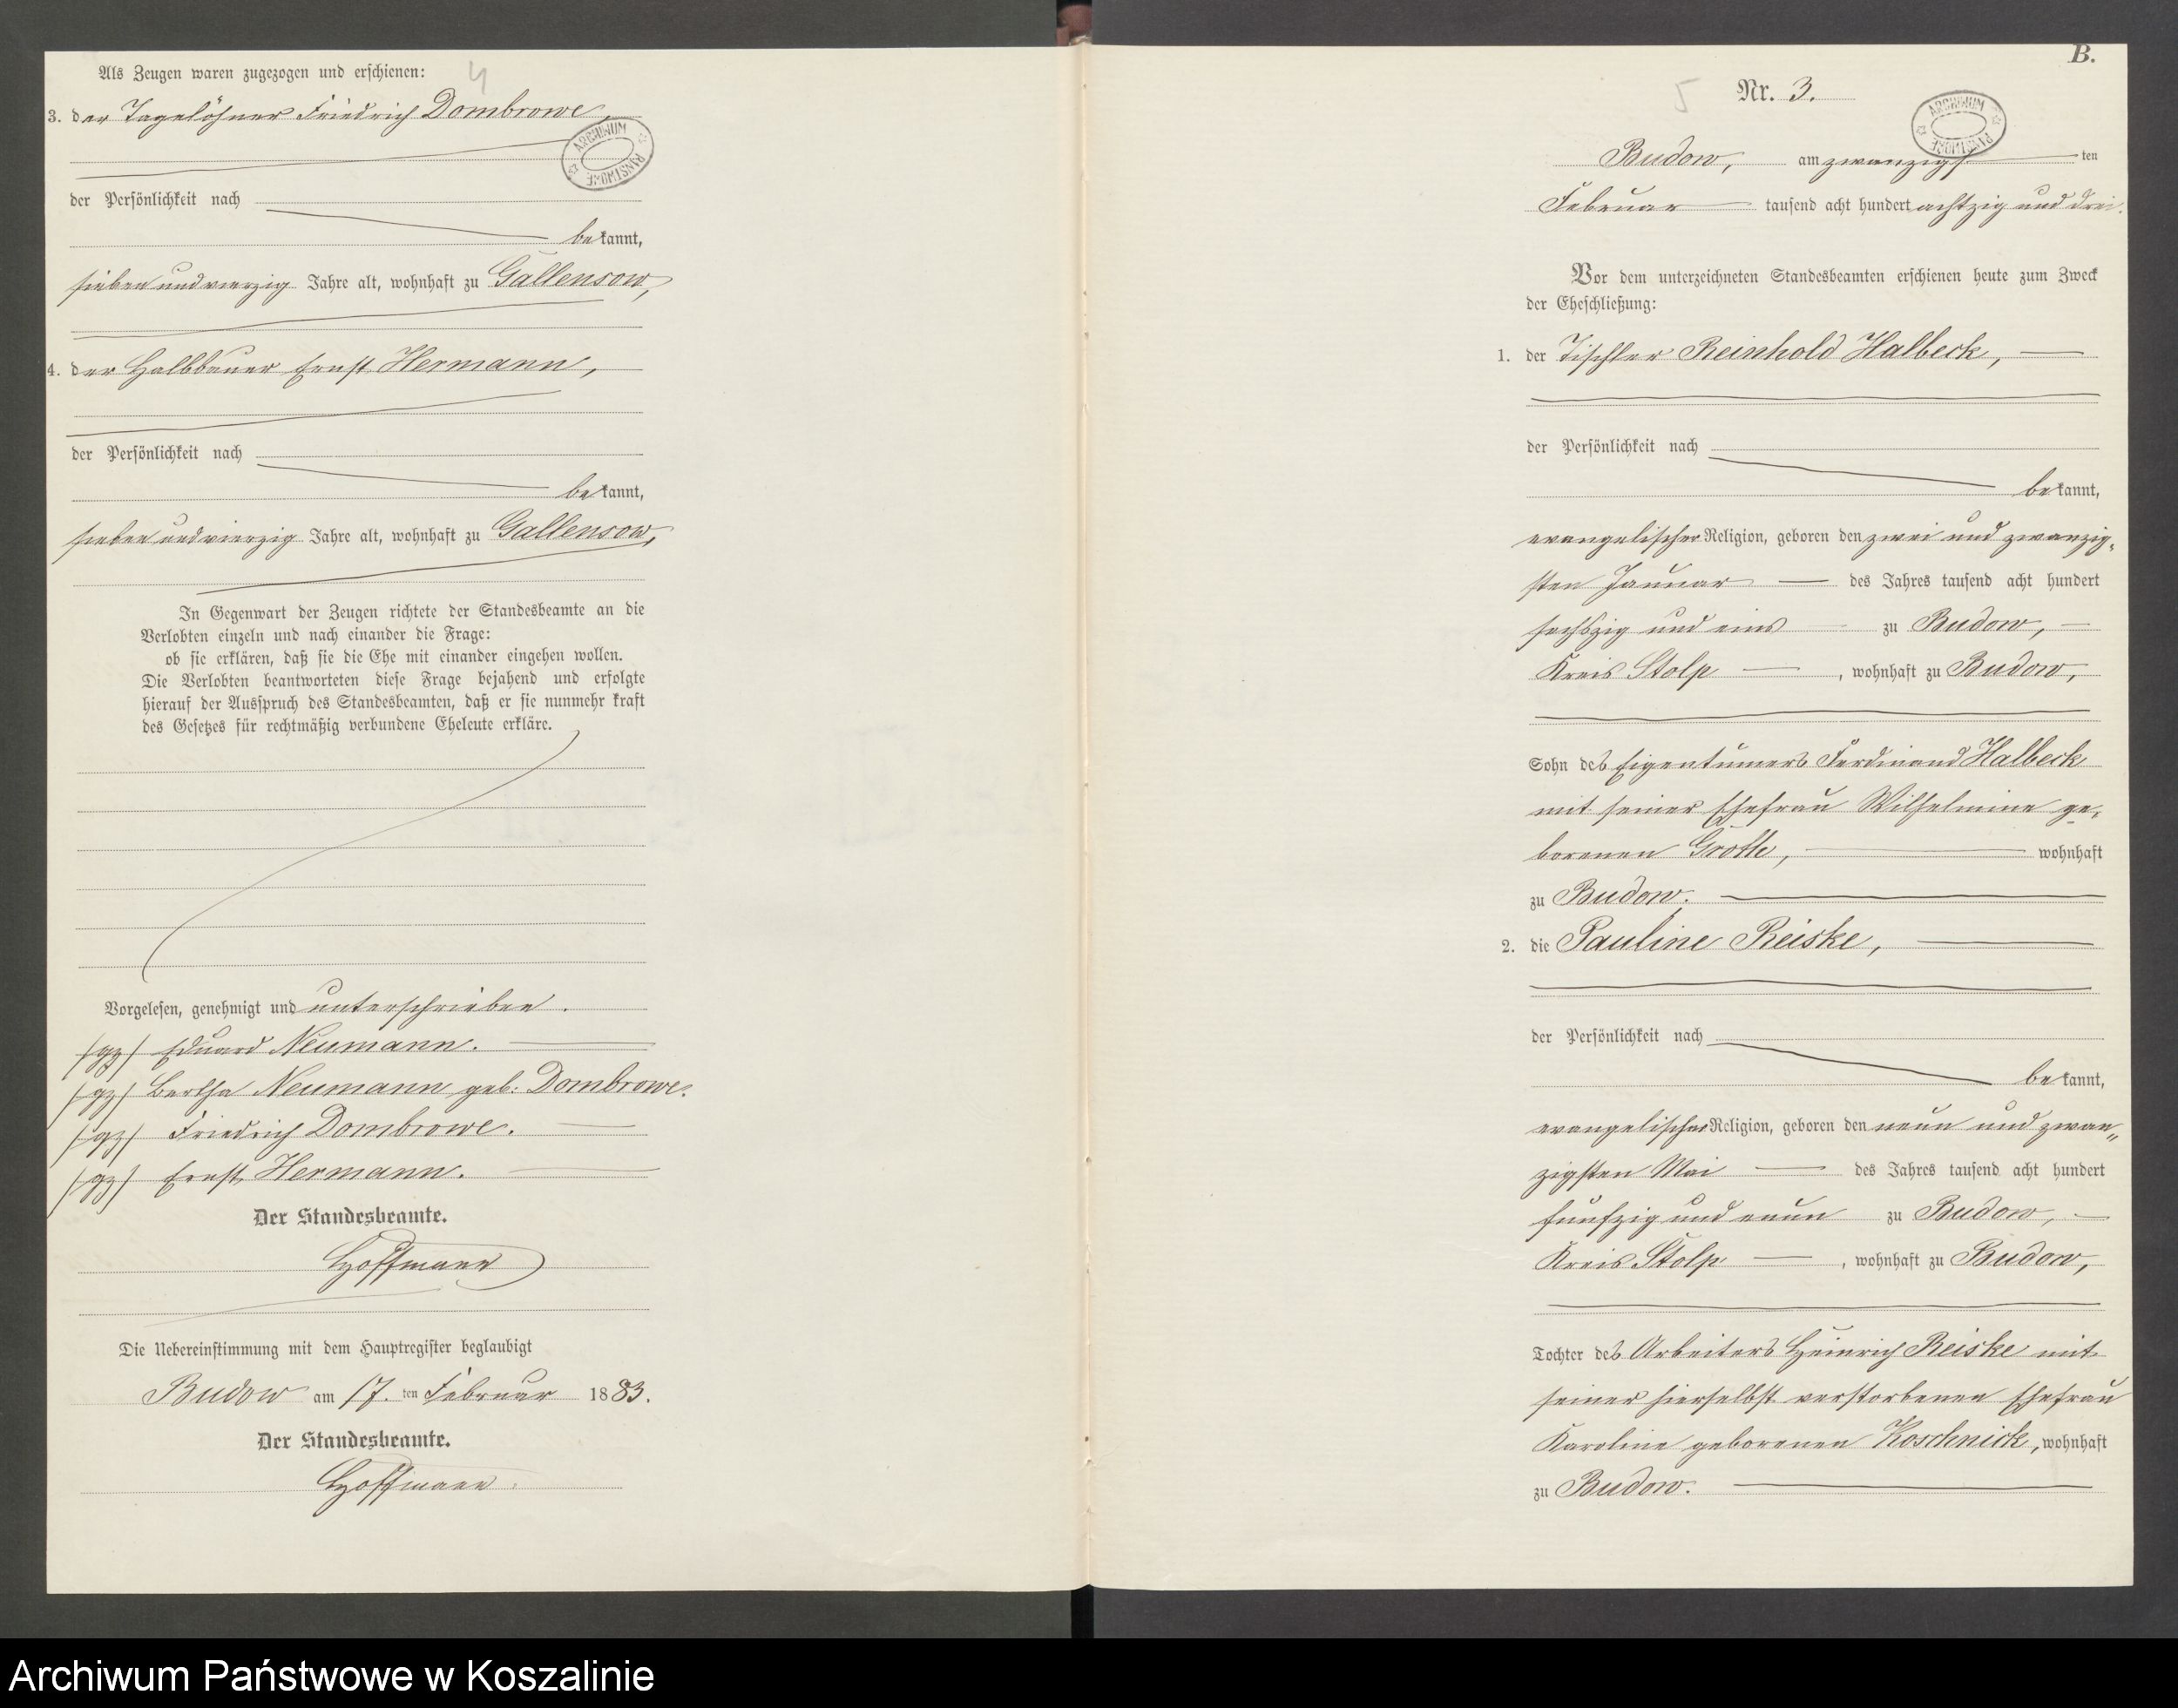 Als Zeugen waren zugezogen und erschienen:
4
3. der Tagelöhner Friedrich Dombrowe,
ARCHIWUM PAŃSTWOWE
der Persönlichkeit nach
bekannt,
sieben und vierzig Jahre alt, wohnhaft zu Gallensow,
4. der Halbbauer Ernst Hermann,
der Persönlichkeit nach
bekannt,
sieben und vierzig Jahre alt, wohnhaft zu Gallensow,
In Gegenwart der Zeugen richtete der Standesbeamte an die
Verlobten einzeln und nach einander die Frage:
ob sie erklären, daß sie die Ehe mit einander eingehen wollen.
Die Verlobten beantworteten diese Frage bejahend und erfolgte
hierauf der Ausspruch des Standesbeamten, daß er sie nunmehr kraft
des Gesetzes für rechtmäßig verbundene Eheleute erkläre.
Vorgelesen, genehmigt und unterschrieben.
/gz/ Eduard Neumann.
/gz/ Bertha Neumann geb: Dombrowe.
/gz/ Friedrich Dombrowe.
/gz/ Ernst Hermann.
Der Standesbeamte.
Hoffmann
Die Uebereinstimmung mit dem Hauptregister beglaubigt
Budow am 17. ten Februar 1883.
Der Standesbeamte.
Hoffmann.
B.
5
Nr. 3.
ARCHIWUM PAŃSTWOWE
Budow, am zwanzigsten
Februar tausend acht hundert achtzig und drei.
Vor dem unterzeichneten Standesbeamten erschienen heute zum Zweck
der Eheschließung:
1. der Tischler Reinhold Halbeck,
der Persönlichkeit nach
bekannt,
evangelischer Religion, geboren den zwei und zwanzig-
sten Januar des Jahres tausend acht hundert
sechszig und eins zu Budow,
Kreis Stolp, wohnhaft zu Budow,
Sohn des Eigentümers Ferdinand Halbeck
mit seiner Ehefrau Wilhelmine ge-
borenen Grothe, wohnhaft
zu Budow.
2. die Pauline Reiske,
der Persönlichkeit nach
bekannt,
evangelischer Religion, geboren den neun und zwan-
zigsten Mai des Jahres tausend acht hundert
fünfzig und neun zu Budow,
Kreis Stolp, wohnhaft zu Budow,
Tochter des Arbeiters Heinrich Reiske mit
seiner hierselbst verstorbenen Ehefrau
Karoline geborenen Koschnick, wohnhaft
zu Budow.
Archiwum Państwowe w Koszalinie